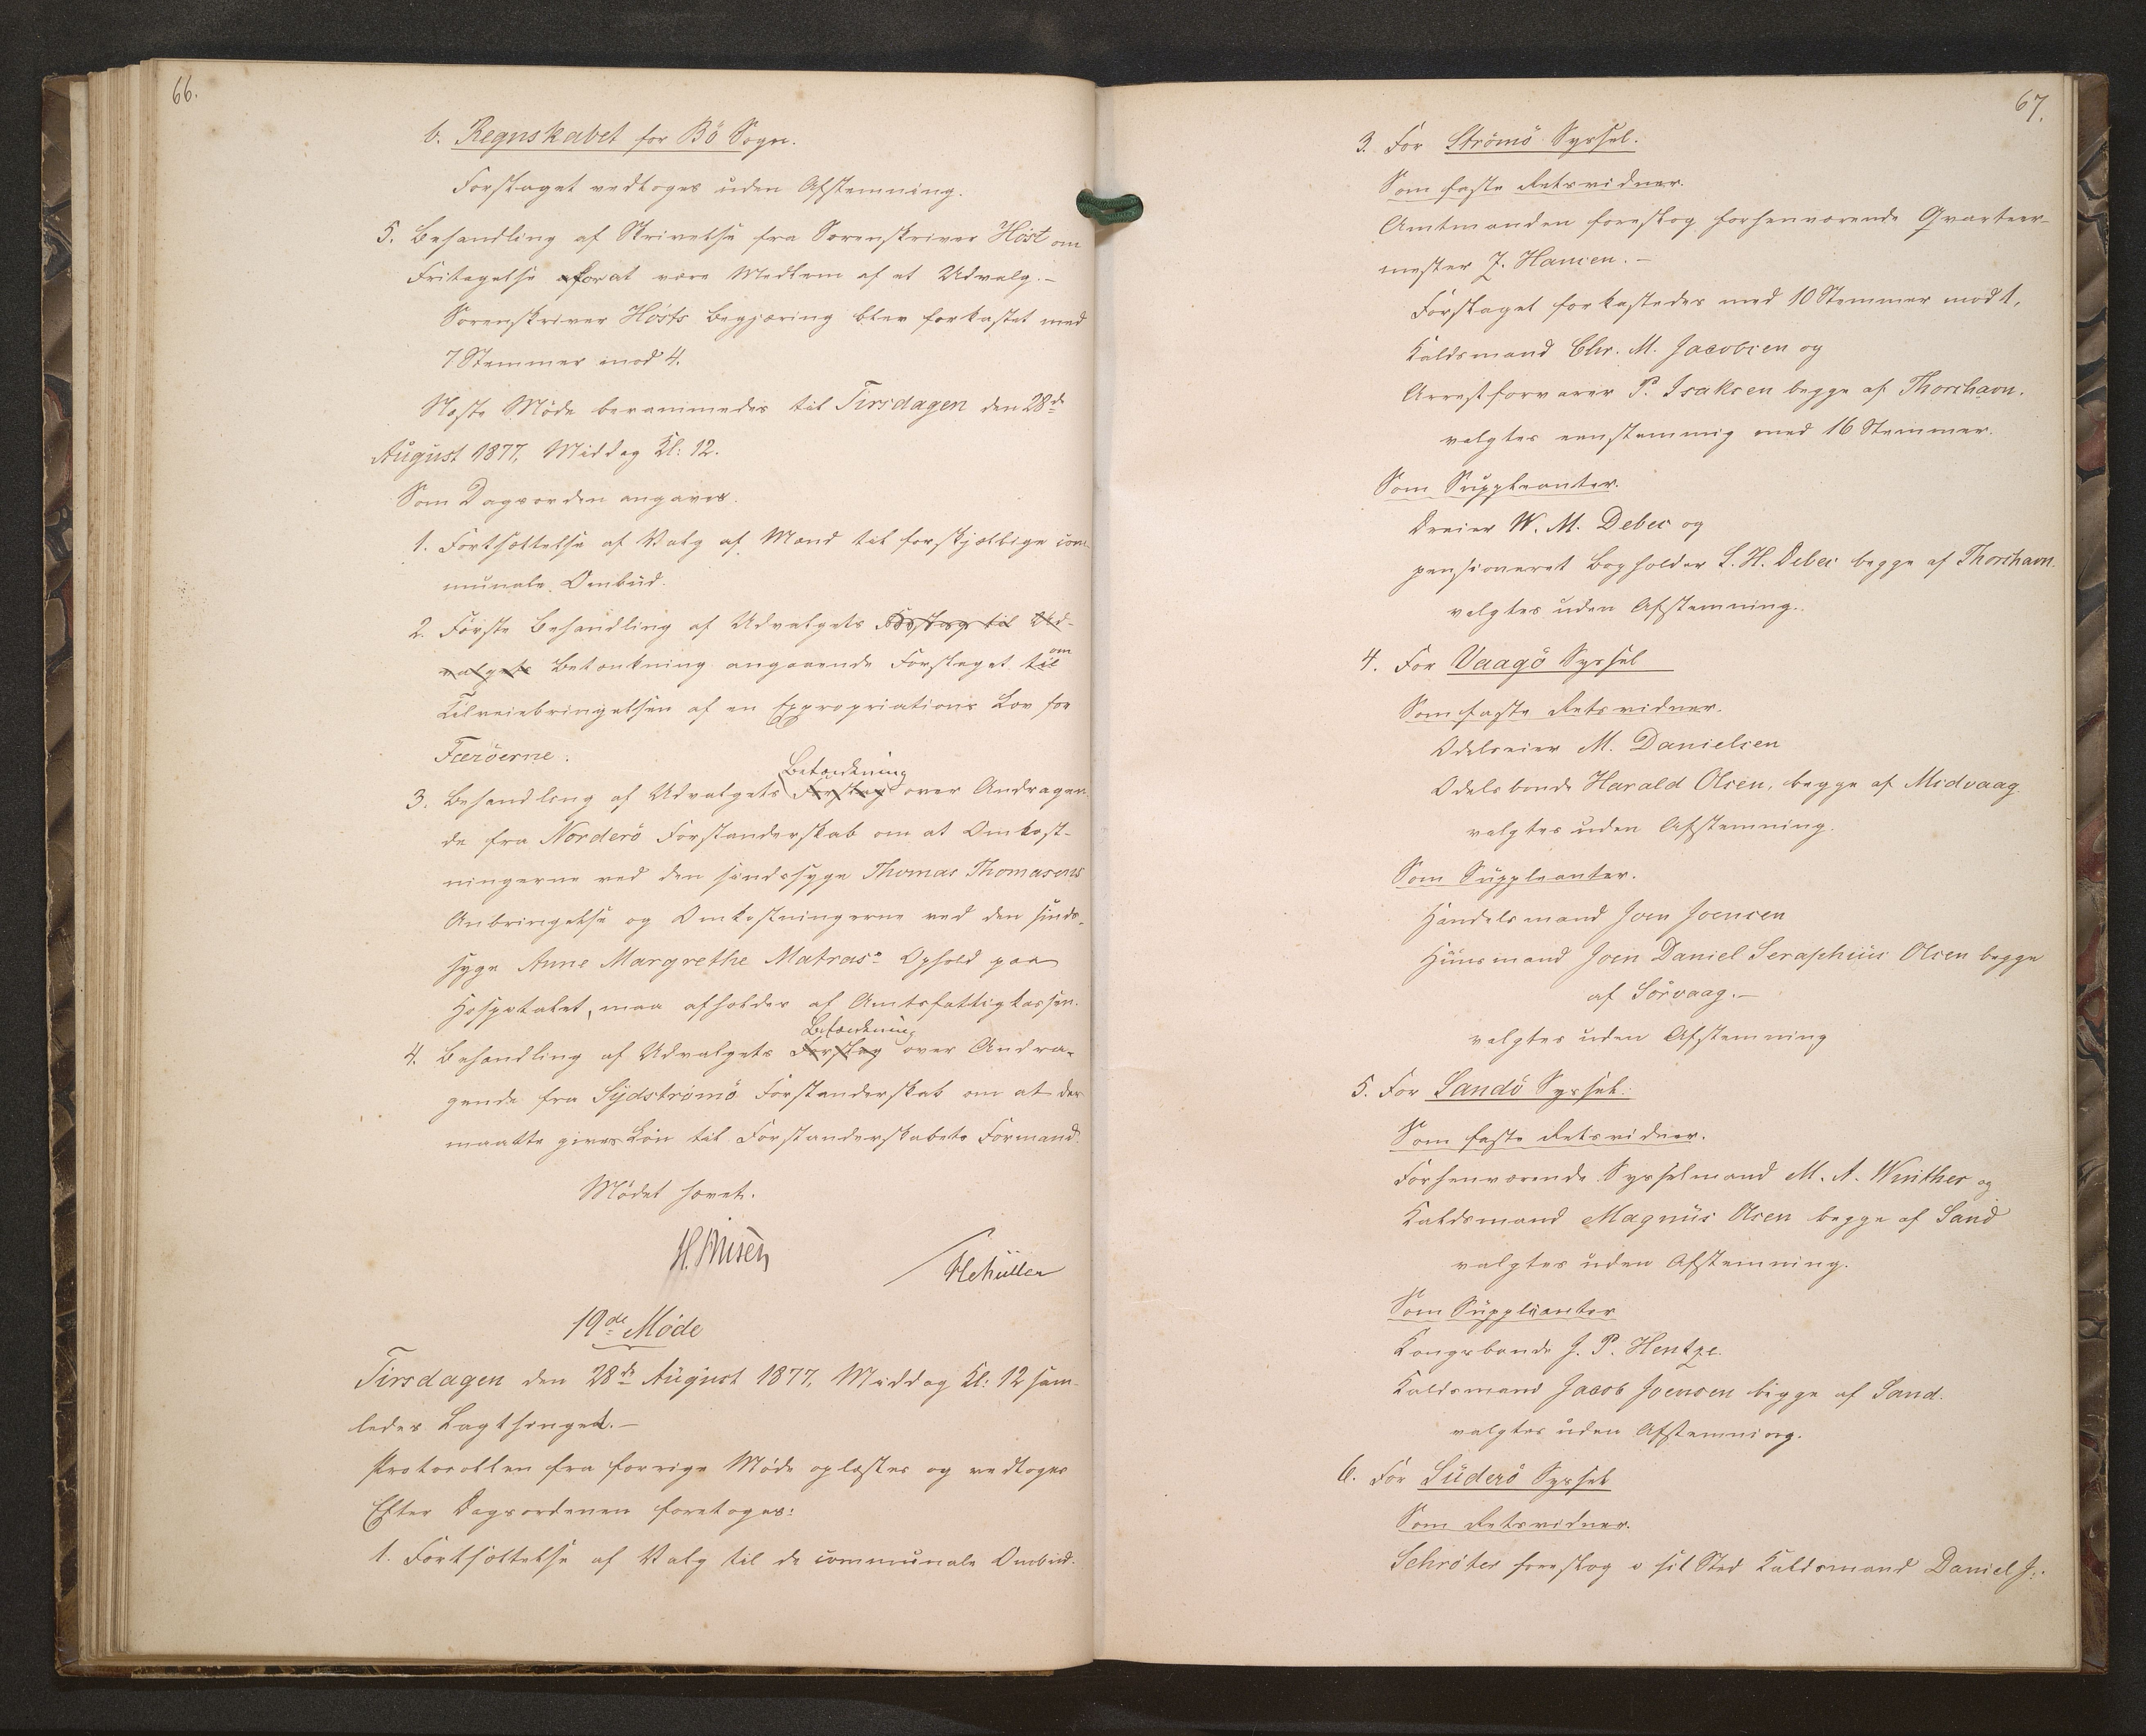 66.
b. Regnskabet for Bö Sogn.
Forslaget vedtoges uden Afstemning.
5. Behandling af Skrivelse fra Sorenskriver Höst om
Fritagelse for at være Medlem af et Udvalg.—
Sorenskriver Hösts Begjæring blev forkastet med
7 Stemmer imod 4.
Næste Möde berammedes til Tirsdagen den 28de
August 1877, Middag Kl: 12.
Som Dagsorden angaves.
1. Fortsættelse af Valg af Mænd til forskjellige com-
munale Ombud.
2. Förste Behandling af Udvalgets Forslag til Ud-
valgets Betænkning angaaende Forslaget til om
Tilveiebringelsen af en Expropriations Lov for
Færöerne.
3. Behandling af Udvalgets Forslag Betænkning over Andragen-
de fra Norderö Forstanderskab om at Omkost-
ningerne ved den sindssyge Thomas Thomasens
Anbringelse og Omkostningerne ved den sinds-
syge Anne Margrethe Matras's Ophold paa
Hospitalet, maa afholdes af Amtsfattigkassen.
4. Behandling af Udvalgets Forslag Betænkning over Andra-
gende fra Sydströmö Forstanderskab om at der
maatte gives Lön til Forstanderskabets Formand.
Mödet hævet.
H. Finsen
HMüller
19de Möde
Tirsdagen den 28de August 1877, Middag Kl: 12 sam-
ledes Lagthinget.—
Protocollen fra forrige Möde oplæstes og vedtoges
Efter Dagsordenen foretoges:
1. Fortsættelse af Valg til de communale Ombud.
67.
3. For Strömö Syssel.
Som faste Retsvidner.
Amtmanden foreslog forhenværende Qvarteer-
mester J. Hansen.—
Forslaget forkastedes med 10 Stemmer mod 1.
Kaldsmand Chr. M. Jacobsen og
Arrestforvarer P. Isaksen begge af Thorshavn.
valgtes eenstemmig med 16 Stemmer.
Som Suppleanter.
Dreier W. M. Debes og
pensioneret Bogholder L. H. Debes begge af Thorshavn.
valgtes uden Afstemning.
4. For Vaagö Syssel
Som faste Retsvidner.
Odelseier M. Danielsen
Odelsbonde Harald Olsen, begge af Midvaag.
valgtes uden Afstemning.
Som Suppleanter.
Handelsmand Joen Joensen
Huusmand Joen Daniel Seraphius Olsen begge
af Sörvaag.—
valgtes uden Afstemning
5. For Sandö Syssel.
Som faste Retsvidner.
Forhenværende Sysselmand M. A. Winther og
Kaldsmand Magnus Olsen begge af Sand
valgtes uden Afstemning.
Som Suppleanter
Kongsbonde J. P. Hentze.
Kaldsmand Jacob Joensen begge af Sand.
valgtes uden Afstemning.
6. For Süderö Syssel
Som Retsvidner.
Schröter foreslog i sit Sted Kaldsmand Daniel J.